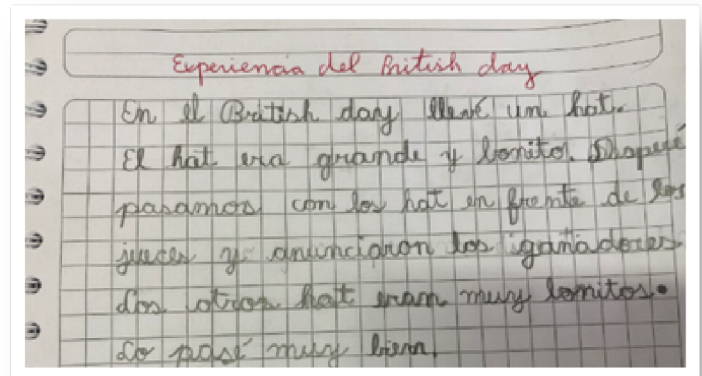 Experiencia del British day
En el British day llevé un hat.
El hat era grande y bonito. Despué
pasamos con los hat en frente de los
jueces y anunciaron los ganadores.
Los otros hat eram muy bonitos.
Lo pasé muy bien.